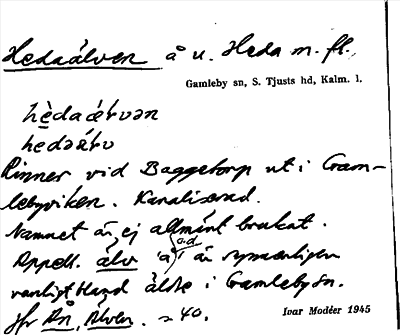 Hedaälven å u. Heda m. fl.
Gamleby sn, S. Tjusts hd, Kalm. l.
hèdaǽɫvən
hedəǽɫv
Rinner vid Baggetorp ut i Gam-
lebyviken. Kanaliserad.
Namnet är ej allmänt brukat.
Appell. älv 'å' o.d. är synnerligen
vanligt bland äldre i Gamleby sn.
Jfr Ån, Älven. s 40.
Ivar Modéer 1945